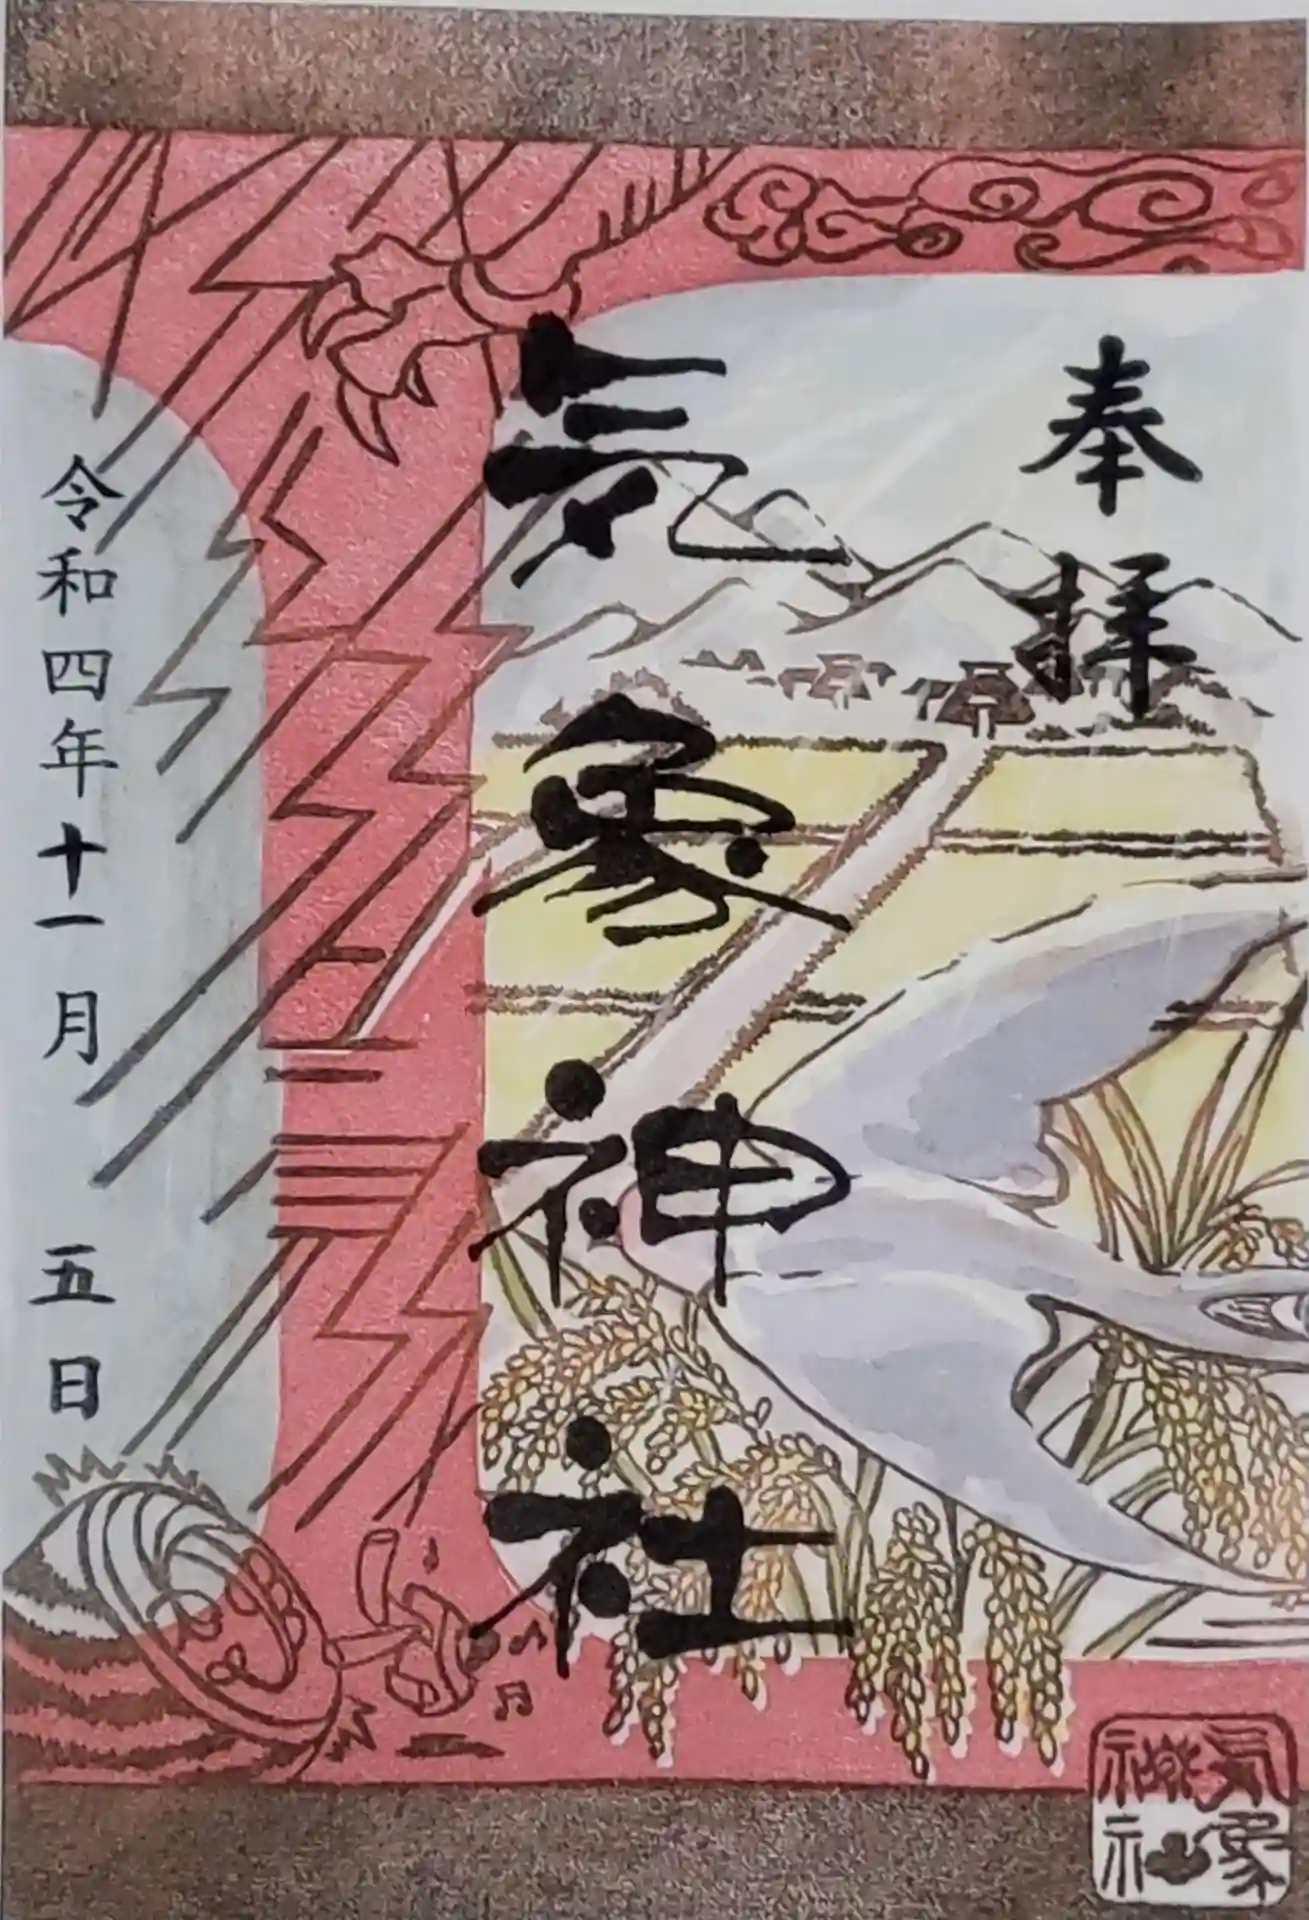 奉拝
気象神社
令和四年十一月五日
気象
神社